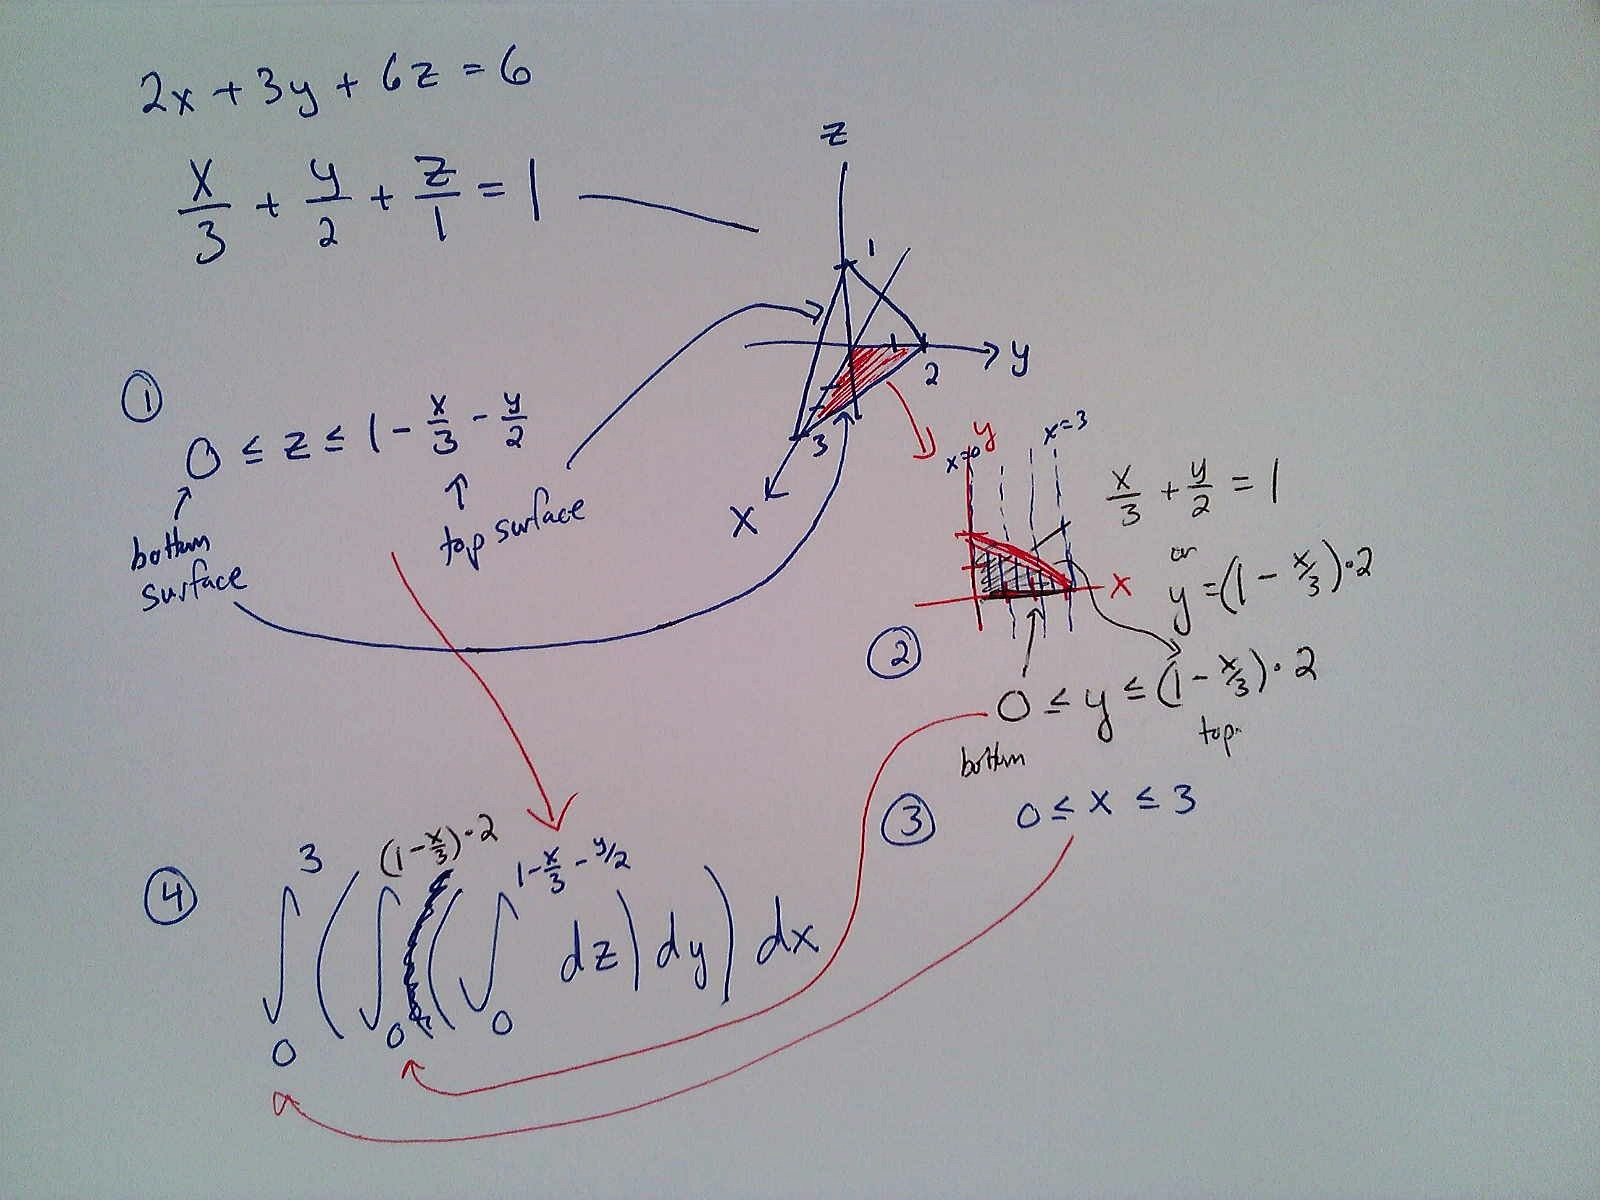 2x + 3y + 6z = 6
x/3 + y/2 + z/1 = 1
z
1
y
1
2
3
x
①
0 ≤ z ≤ 1 - x/3 - y/2
bottom surface
top surface
x=0
y
x=3
x
x/3 + y/2 = 1
or
y = (1 - x/3)·2
②
0 ≤ y ≤ (1 - x/3)·2
bottom
top
③ 0 ≤ x ≤ 3
④
∫₀³ (∫₀^{(1-x/3)·2} (∫₀^{1-x/3-y/2} dz) dy) dx